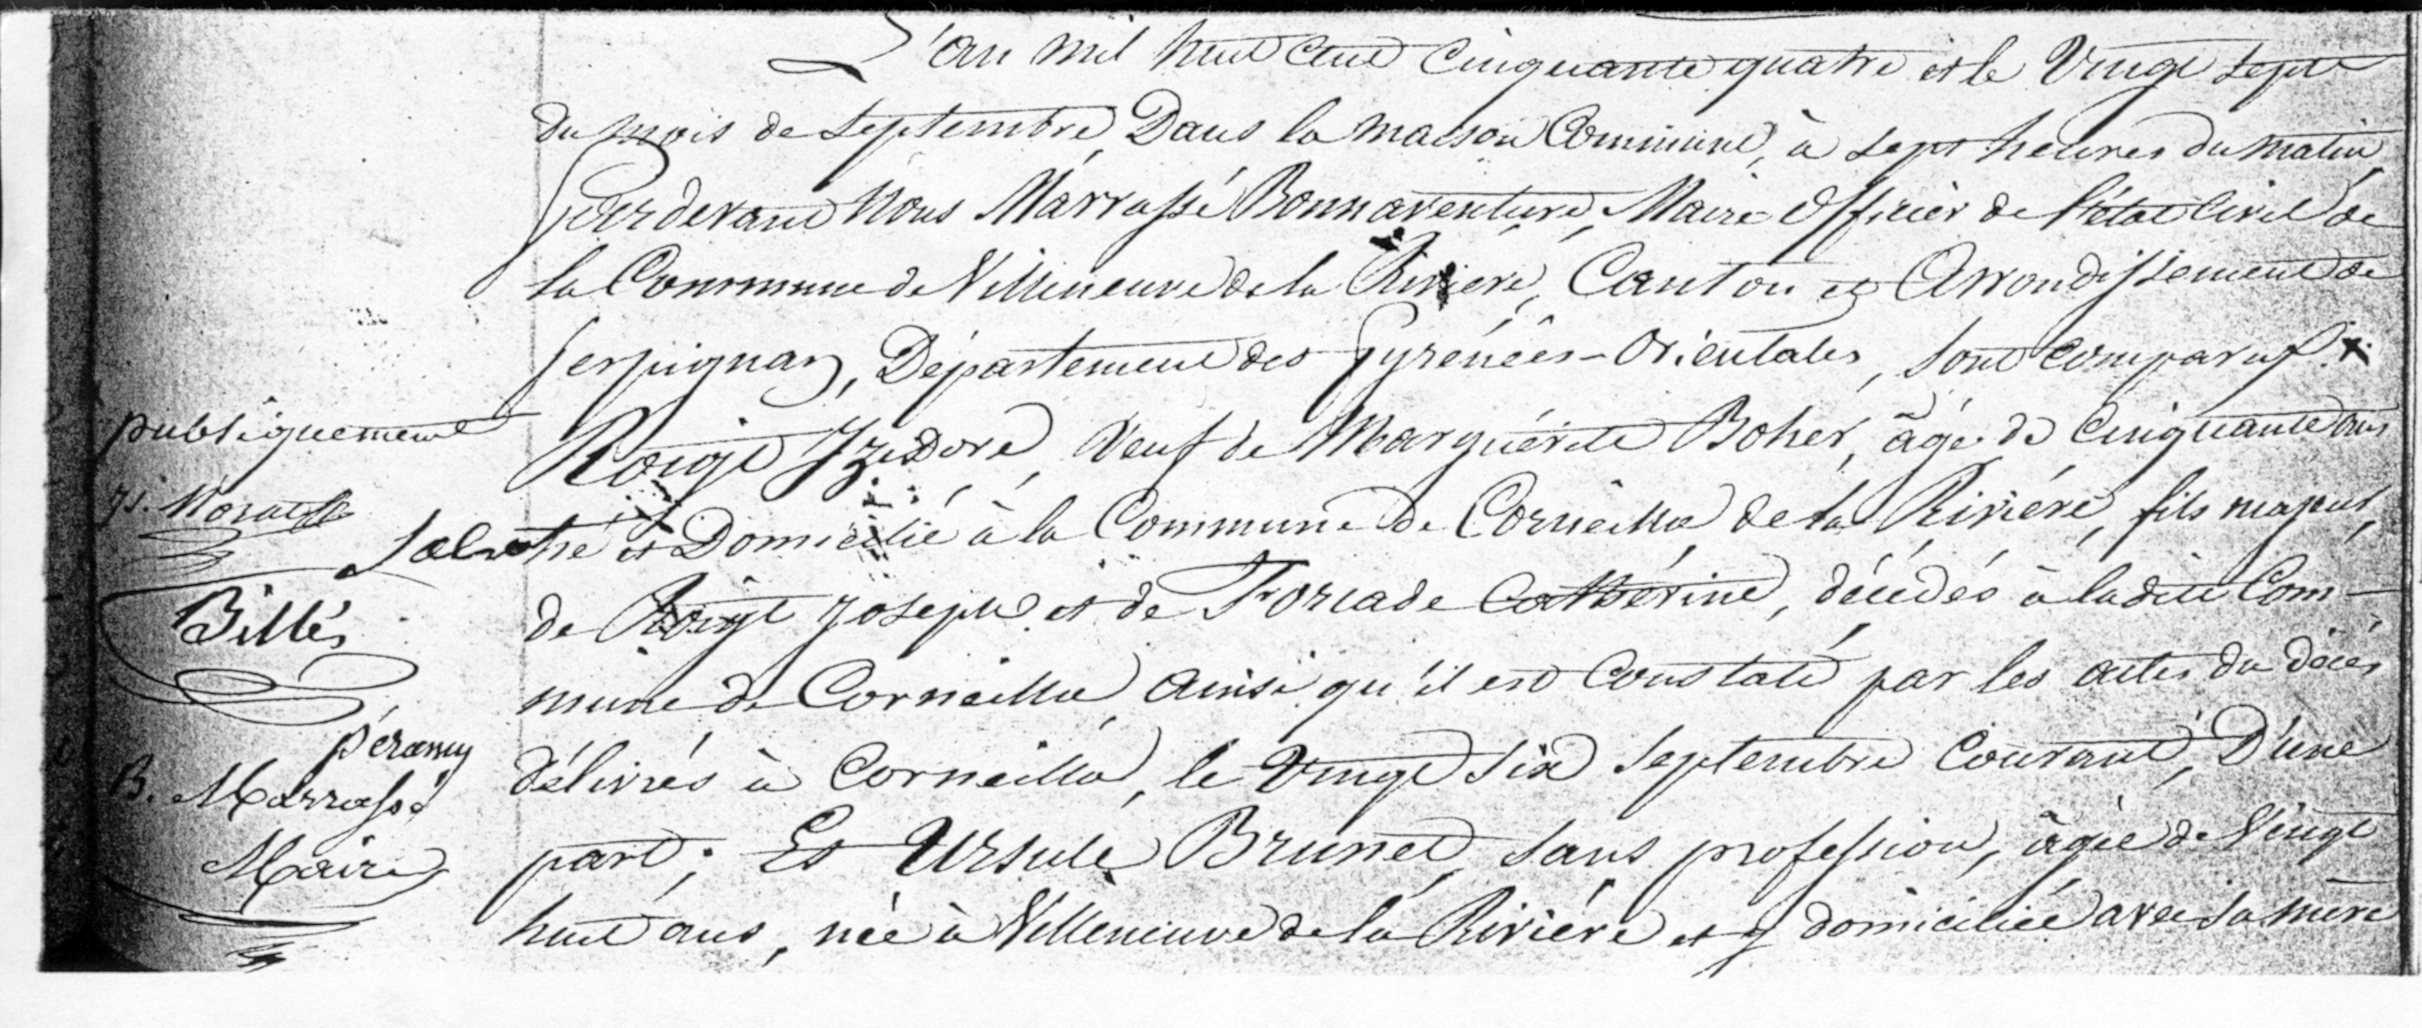 L'an mil huit cent cinquante quatre et le Vingt sept
du mois de septembre, Dans la maison Commune, à sept heures du matin
Pardevant Nous Marrassé Bonnaventure, Maire Officier de l'état Civil de
la Commune de Villeneuve de la Riviére, Canton et Arrondissement de
Perpignan, Département des Pyrénées-Orientales, sont comparus
publiquement
Roigt Izidore, veuf de Marguérite Boher, âgé de Cinquante ans
et Domicilié à la Commune de Corneilla de la Riviére, fils majeur,
de Roigt Joseph et de Forcade Cathérine, décédés à ladite Com-
Billés
mune de Corneilla ainsi qu'il est Constaté par les actes du décés
Péramy
délivrés à Corneilla, le Vingt six septembre Courant, D'une
B. Marrassé
part; Et Ursule Brunet, sans profession, âgée de Vingt
Maire
huit ans, née à Villeneuve de la Riviére et y domiciliée avec sa mère